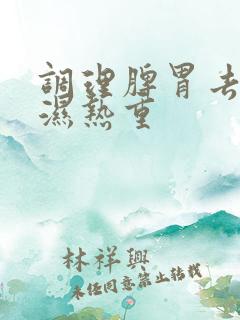 調理脾胃去
濕熱重
林祥興
未經同意禁止轉載